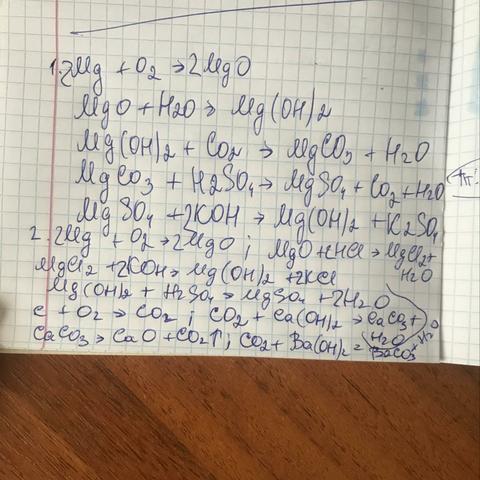 1. 2Mg + O2 → 2MgO
MgO + H2O → Mg(OH)2
Mg(OH)2 + CO2 → MgCO3 + H2O
MgCO3 + H2SO4 → MgSO4 + CO2 + H2O
MgSO4 + 2KOH → Mg(OH)2 + K2SO4
2. 2Mg + O2 → 2MgO; MgO + HCl → MgCl2 +
H2O
MgCl2 + 2KOH → Mg(OH)2 + 2KCl
Mg(OH)2 + H2SO4 → MgSO4 + 2H2O
C + O2 → CO2; CO2 + Ca(OH)2 → CaCO3 + H2O
CaCO3 → CaO + CO2↑; CO2 + Ba(OH)2 = H2O
BaCO3